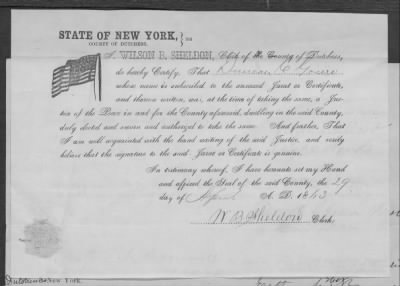 STATE OF NEW YORK, } ss
COUNTY OF DUTCHESS.
I, WILSON B. SHELDON, Clerk of the County of Dutchess,
do hereby Certify, That Duncan C
whose name is subscribed to the annexed Jurat or Certificate,
and thereon written, was, at the time of taking the same, a Jus-
tice of the Peace in and for the County aforesaid, dwelling in the said County,
duly elected and sworn and authorized to take the same. And further, That
I am well acquainted with the hand writing of the said Justice, and verily
believe that the signature to the said Jurat or Certificate is genuine.
In testimony whereof, I have hereunto set my Hand
and affixed the Seal of the said County, the 29
day of April A. D. 1863
W. B. Sheldon Clerk.
New York